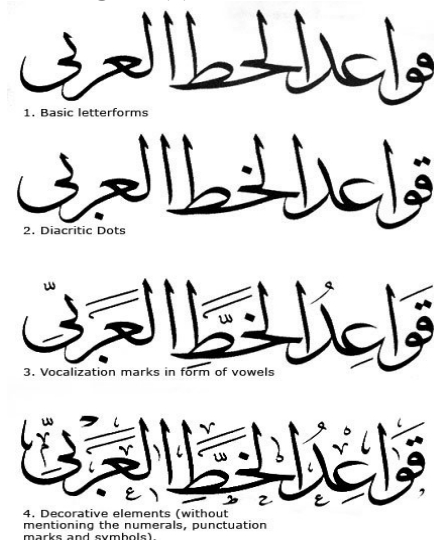 ٯواعد الحط العرٮى
1. Basic letterforms
قواعد الخط العربى
2. Diacritic Dots
قَوَاعِدُ الخَطِّ العَرَبِىّ
3. Vocalization marks in form of vowels
قَوَاعِدُ الخَطِّ العَرَبِىّ
4. Decorative elements (without
mentioning the numerals, punctuation
marks and symbols).